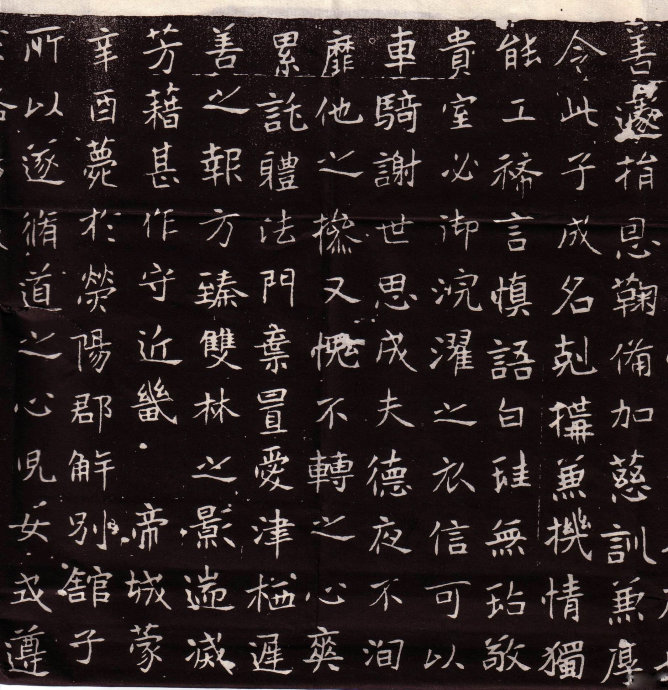 善遽捐恩鞠備加慈訓兼厚
令此子成名剋構兼機情獨
能工稀言慎語白珪無玷敬
貴室必御浣濯之衣信可以
車騎謝世思成夫德夜不洵
靡他之操又愧不轉之心爽
累託體法門棄置愛津栖遲
善之報方臻雙林之影遄滅
芳藉甚作守近畿帝城蒙
辛酉薨於滎陽郡解別館子
所以遂脩道之心兒女或遵